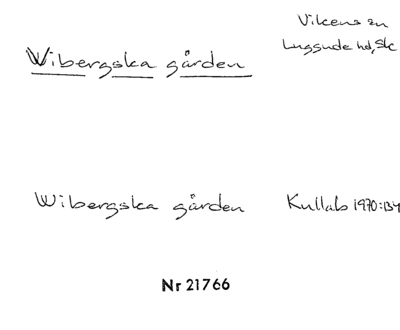 Vikens sn
Luggude hd, Sk
Wibergska gården
Wibergska gården Kullab 1970:134
Nr 21766